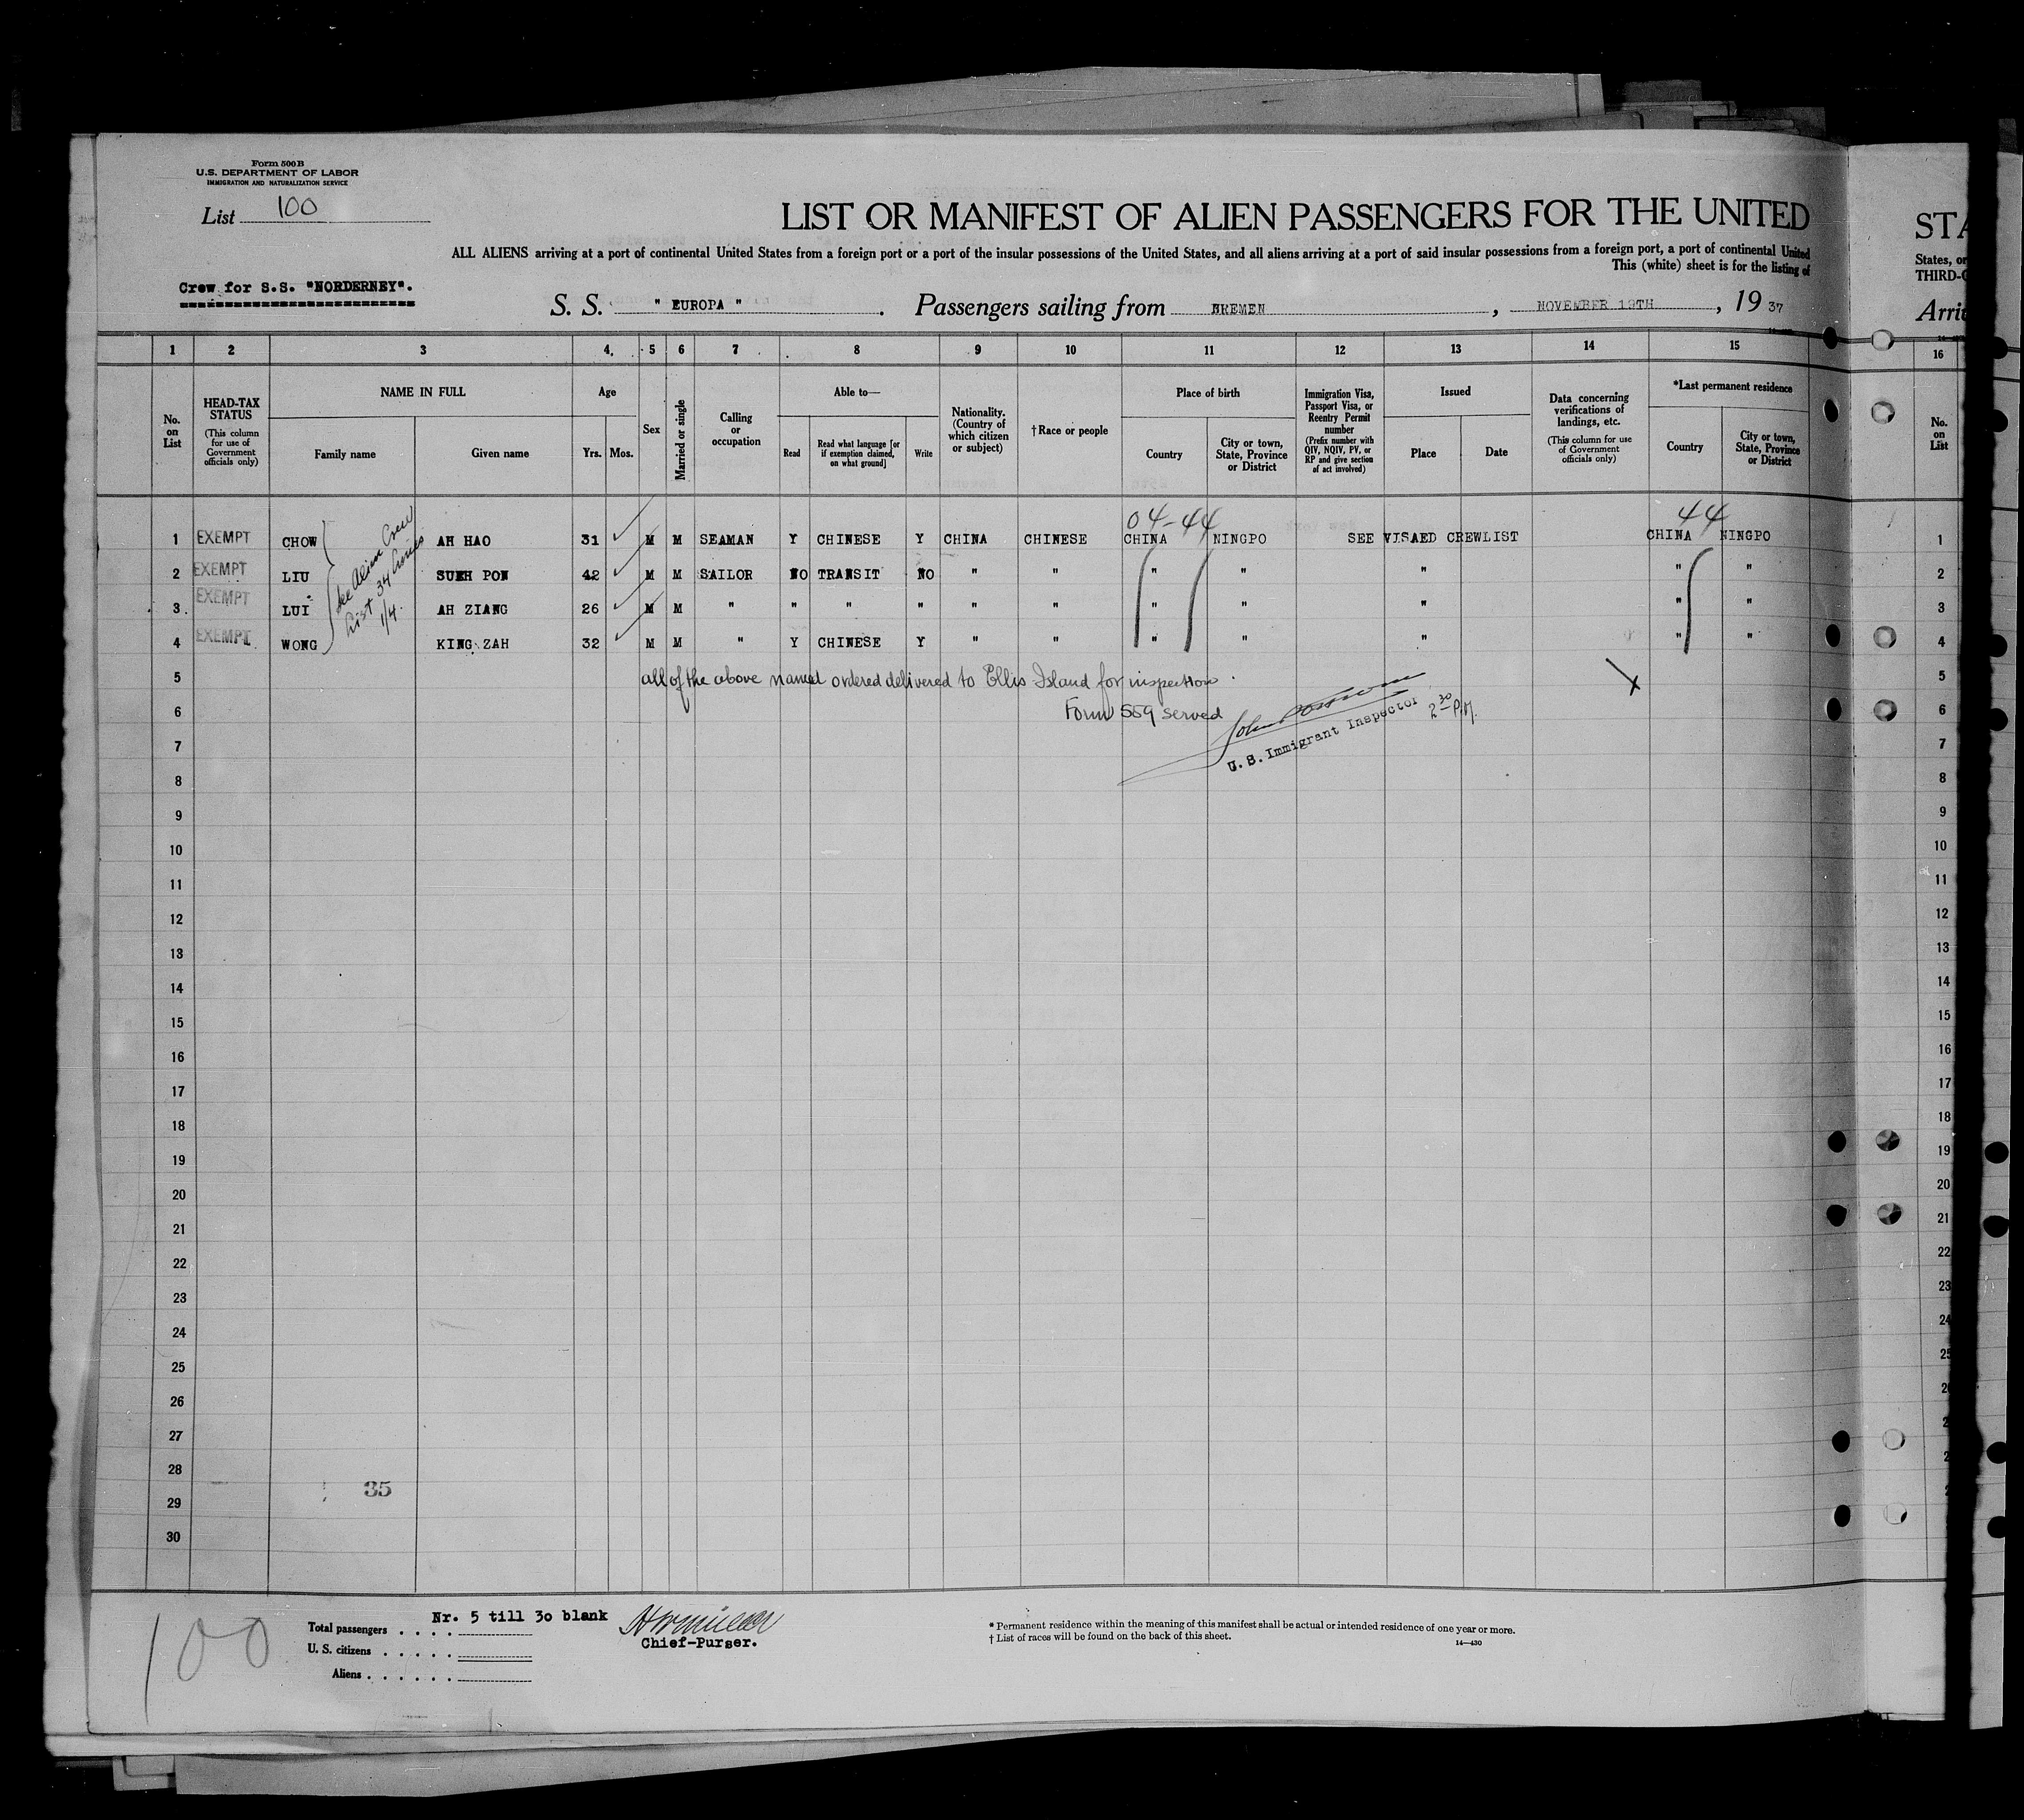 Form 500B
U.S. DEPARTMENT OF LABOR
IMMIGRATION AND NATURALIZATION SERVICE
List 100
LIST OR MANIFEST OF ALIEN PASSENGERS FOR THE UNITED
STA
ALL ALIENS arriving at a port of continental United States from a foreign port or a port of the insular possessions of the United States, and all aliens arriving at a port of said insular possessions from a foreign port, a port of continental United
States, or
This (white) sheet is for the listing of
THIRD-C
Crew for S.S. "NORDERNEY".
S. S. " EUROPA " . Passengers sailing from BREMEN , NOVEMBER 19TH , 19 37
Arri
1 2 3 4. 5 6 7 8 9 10 11 12 13 14 15 16
No. on List
HEAD-TAX STATUS
(This column for use of Government officials only)
NAME IN FULL
Family name
Given name
Age
Yrs. Mos.
Sex
Married or single
Calling or occupation
Able to—
Read
Read what language [or if exemption claimed, on what ground]
Write
Nationality. (Country of which citizen or subject)
†Race or people
Place of birth
Country
City or town, State, Province or District
Immigration Visa, Passport Visa, or Reentry Permit number
(Prefix number with QIV, NQIV, PV, or RP and give section of act involved)
Issued
Place
Date
Data concerning verifications of landings, etc.
(This column for use of Government officials only)
*Last permanent residence
Country
City or town, State, Province or District
No. on List
04-44 44
1 EXEMPT CHOW AH HAO 31 M M SEAMAN Y CHINESE Y CHINA CHINESE CHINA NINGPO SEE VISAED CREWLIST CHINA NINGPO 1
2 EXEMPT LIU SUEH PON 42 M M SAILOR NO TRANSIT NO " " " " " " " 2
3. EXEMPT LUI AH ZIANG 26 M M " " " " " " " " " " " 3
4 EXEMPT WONG KING ZAH 32 M M " Y CHINESE Y " " " " " " " 4
See Alien Crew
List 34
1/4.
5 all of the above named ordered delivered to Ellis Island for inspection. 5
6 Form 559 served John 2 30 P.M. 6
U. S. Immigrant Inspector
7 7
8 8
9 9
10 10
11 11
12 12
13 13
14 14
15 15
16 16
17 17
18 18
19 19
20 20
21 21
22 22
23 23
24 24
25 25
26 2
27 2
28 2
35
29 2
30
100
Nr. 5 till 30 blank
Total passengers . . . .
U. S. citizens . . . . .
Aliens . . . . . .
Chief-Purser.
* Permanent residence within the meaning of this manifest shall be actual or intended residence of one year or more.
† List of races will be found on the back of this sheet.
14—430